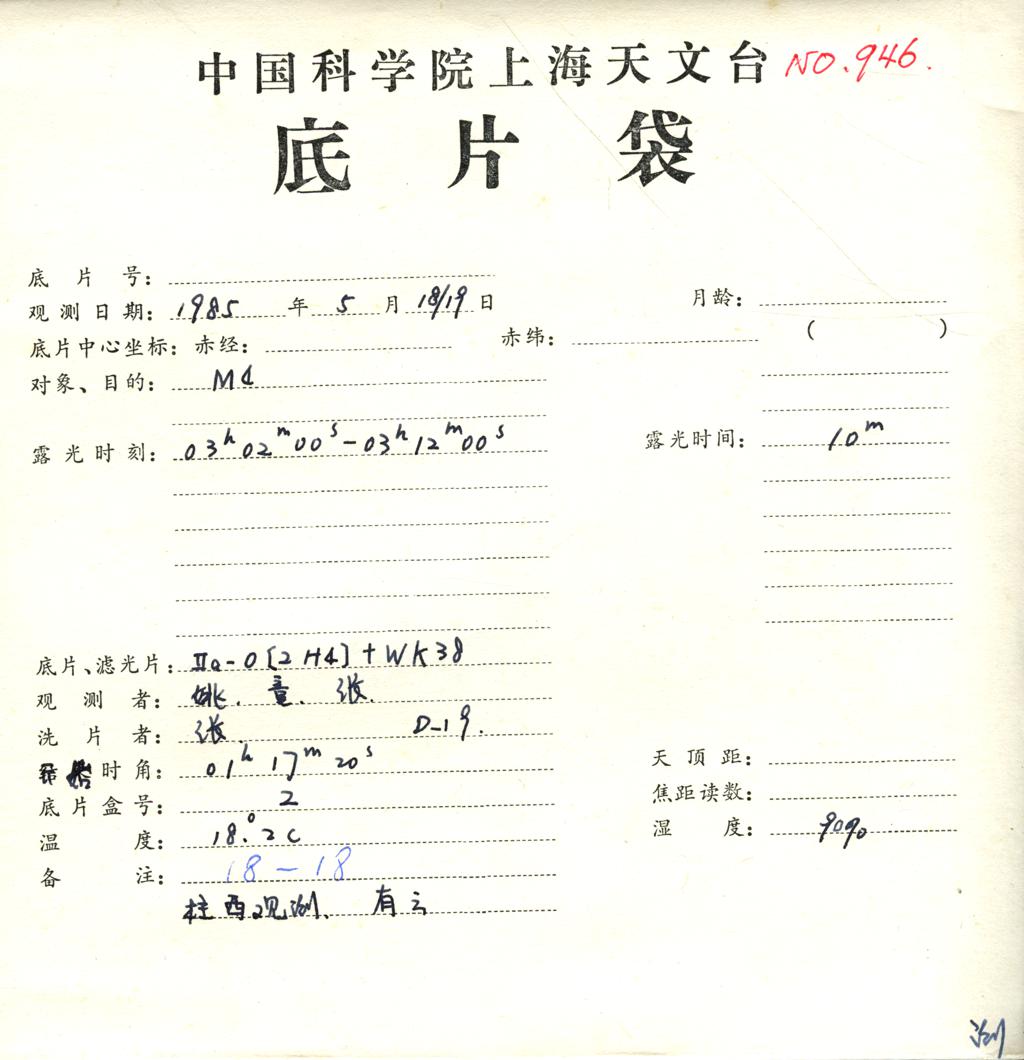 中国科学院上海天文台 NO.946.
底片袋
底片号:
观测日期: 1985 年 5 月 18/19 日 月龄:
底片中心坐标: 赤经: 赤纬: ( )
对象、目的: M4
露光时刻: 03h 02m 00s - 03h 12m 00s 露光时间: 10m
底片、滤光片: IIa-O [2H4] + WK38
观测者: 姚. 童. 张.
洗片者: 张. D-19.
时角: 01h 17m 20s 天顶距:
底片盒号: 2 焦距读数:
温度: 18°.2C 湿度: 90%
备注: 18-18
柱西观测. 有云
测